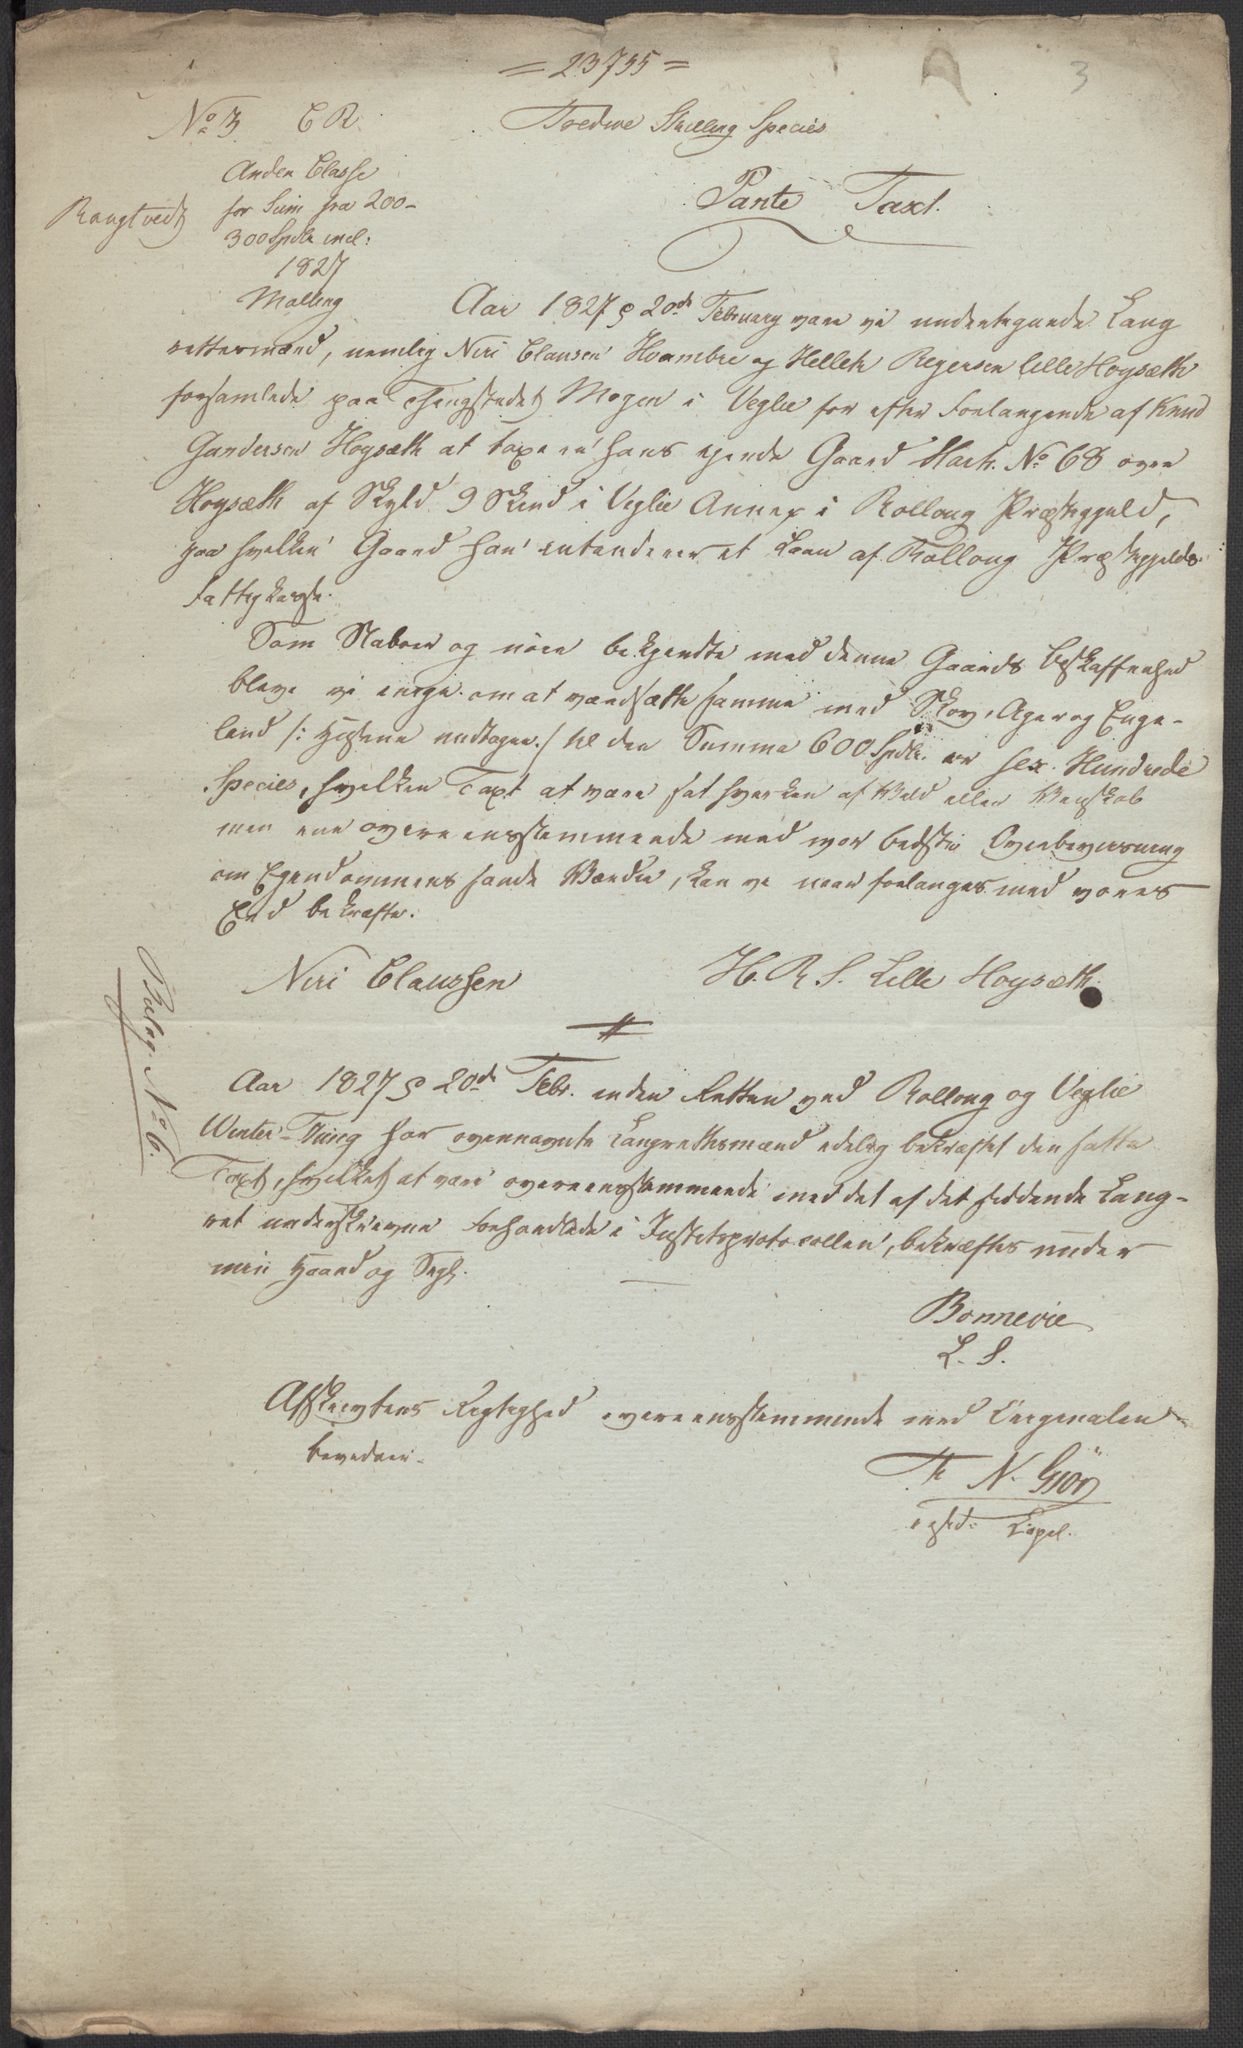 = 23755 =
3
No 3 C R.
Tredive Skilling Species
Anden Classe
for Sum fra 200-
300 Spdlr incl:
1827
Malling
Rangtvedt
Pante Taxt.
Aar 1827 d 20de February vare vi undertegnede Laug
rettesmænd, nemlig Niri Clausen Hvambre og Hellek Regersen lille Hoysæth
forsamlede paa Thingstedet Mogen i Veglie for efter Forlangende af Knud
Gundersen Hoysæth at taxere hans ejende Gaard Matr. No 68 øvre
Hoysæth af Skyld 9 Skind i Veglie Annex i Rolloug Præstegjeld,
paa hvilken Gaard han intenderer et Laan af Rolloug Præstegjelds
Fattigkasse.
Som Naboer og nöie bekjendte med denne Gaards Beskaffenhed
bleve vi enige om at værdsætte samme med Skov, Ager og Enge-
land /: Husene undtagen :/ til den Summa 600 Spdlr. er sex Hundrede
Species, hvilken Taxt at være sat hverken af Vild eller Venskab
men ene overeensstemmende med vor bedste Overbeviisning
om Ejendommens sande Værdie, kan vi naar forlanges med vores
Eed bekræfte.
Niri Claussen H. R. S. Lille Hoysæth.
Bilag No 6.
Aar 1827 d 20de Febr. inden Retten ved Rolloug og Veglie
Winter-Ting har ovennævnte Laugrettesmænd edelig bekræftet den satte
Taxt, hvilket at være overeensstemmende med det af det siddende Laug-
ret underskrevne Forhandlede i Justitsprotocollen, bekræftes under
min Haand og Segl.
Bonnevie
L. S.
Afskrivtens Rigtighed overeensstemmende med Originalen
bevidner.
N. Giör
Capel.